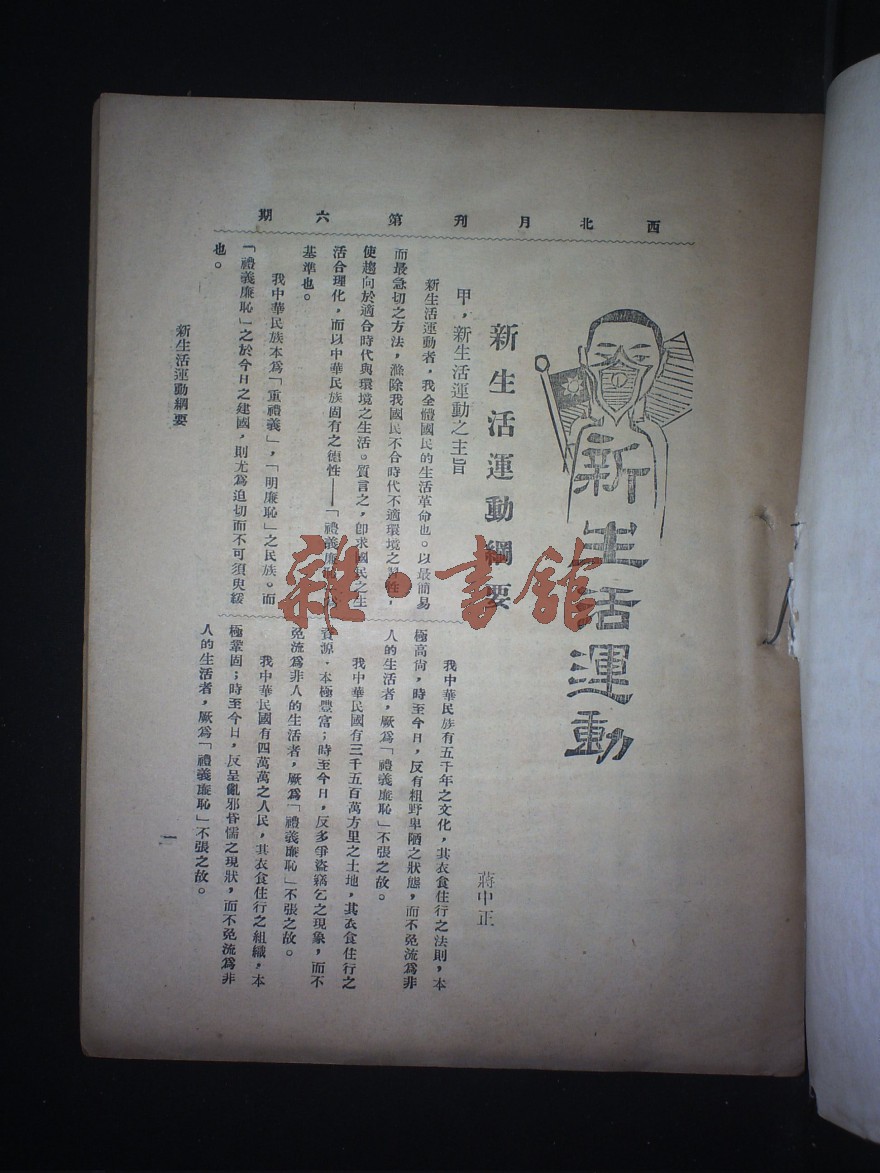 西北月刊第六期
新生活運動
新生活運動綱要
蔣中正
甲，新生活運動之主旨
新生活運動者，我全體國民的生活革命也。以最簡易
而最急切之方法，滌除我國民不合時代不適環境之習性，
使趨向於適合時代與環境之生活。質言之，卽求國民之生
活合理化，而以中華民族固有之德性——「禮義廉
基準也。
我中華民族本爲「重禮義」，「明廉恥」之民族。而
「禮義廉恥」之於今日之建國，則尤爲迫切而不可須臾緩
也。
我中華民族有五千年之文化，其衣食住行之法則，本
極高尙，時至今日，反有粗野卑陋之狀態，而不免流爲非
人的生活者，厥爲「禮義廉恥」不張之故。
我中華民國有三千五百萬方里之土地，其衣食住行之
資源．本極豐富；時至今日，反多爭盜竊乞之現象，而不
免流爲非人的生活者，厥爲「禮義廉恥」不張之故。
我中華民國有四萬萬之人民，其衣食住行之組織，本
極鞏固；時至今日，反呈亂邪昏懦之現狀，而不免流爲非
人的生活者，厥爲「禮義廉恥」不張之故。
新生活運動綱要
一
雜·書館